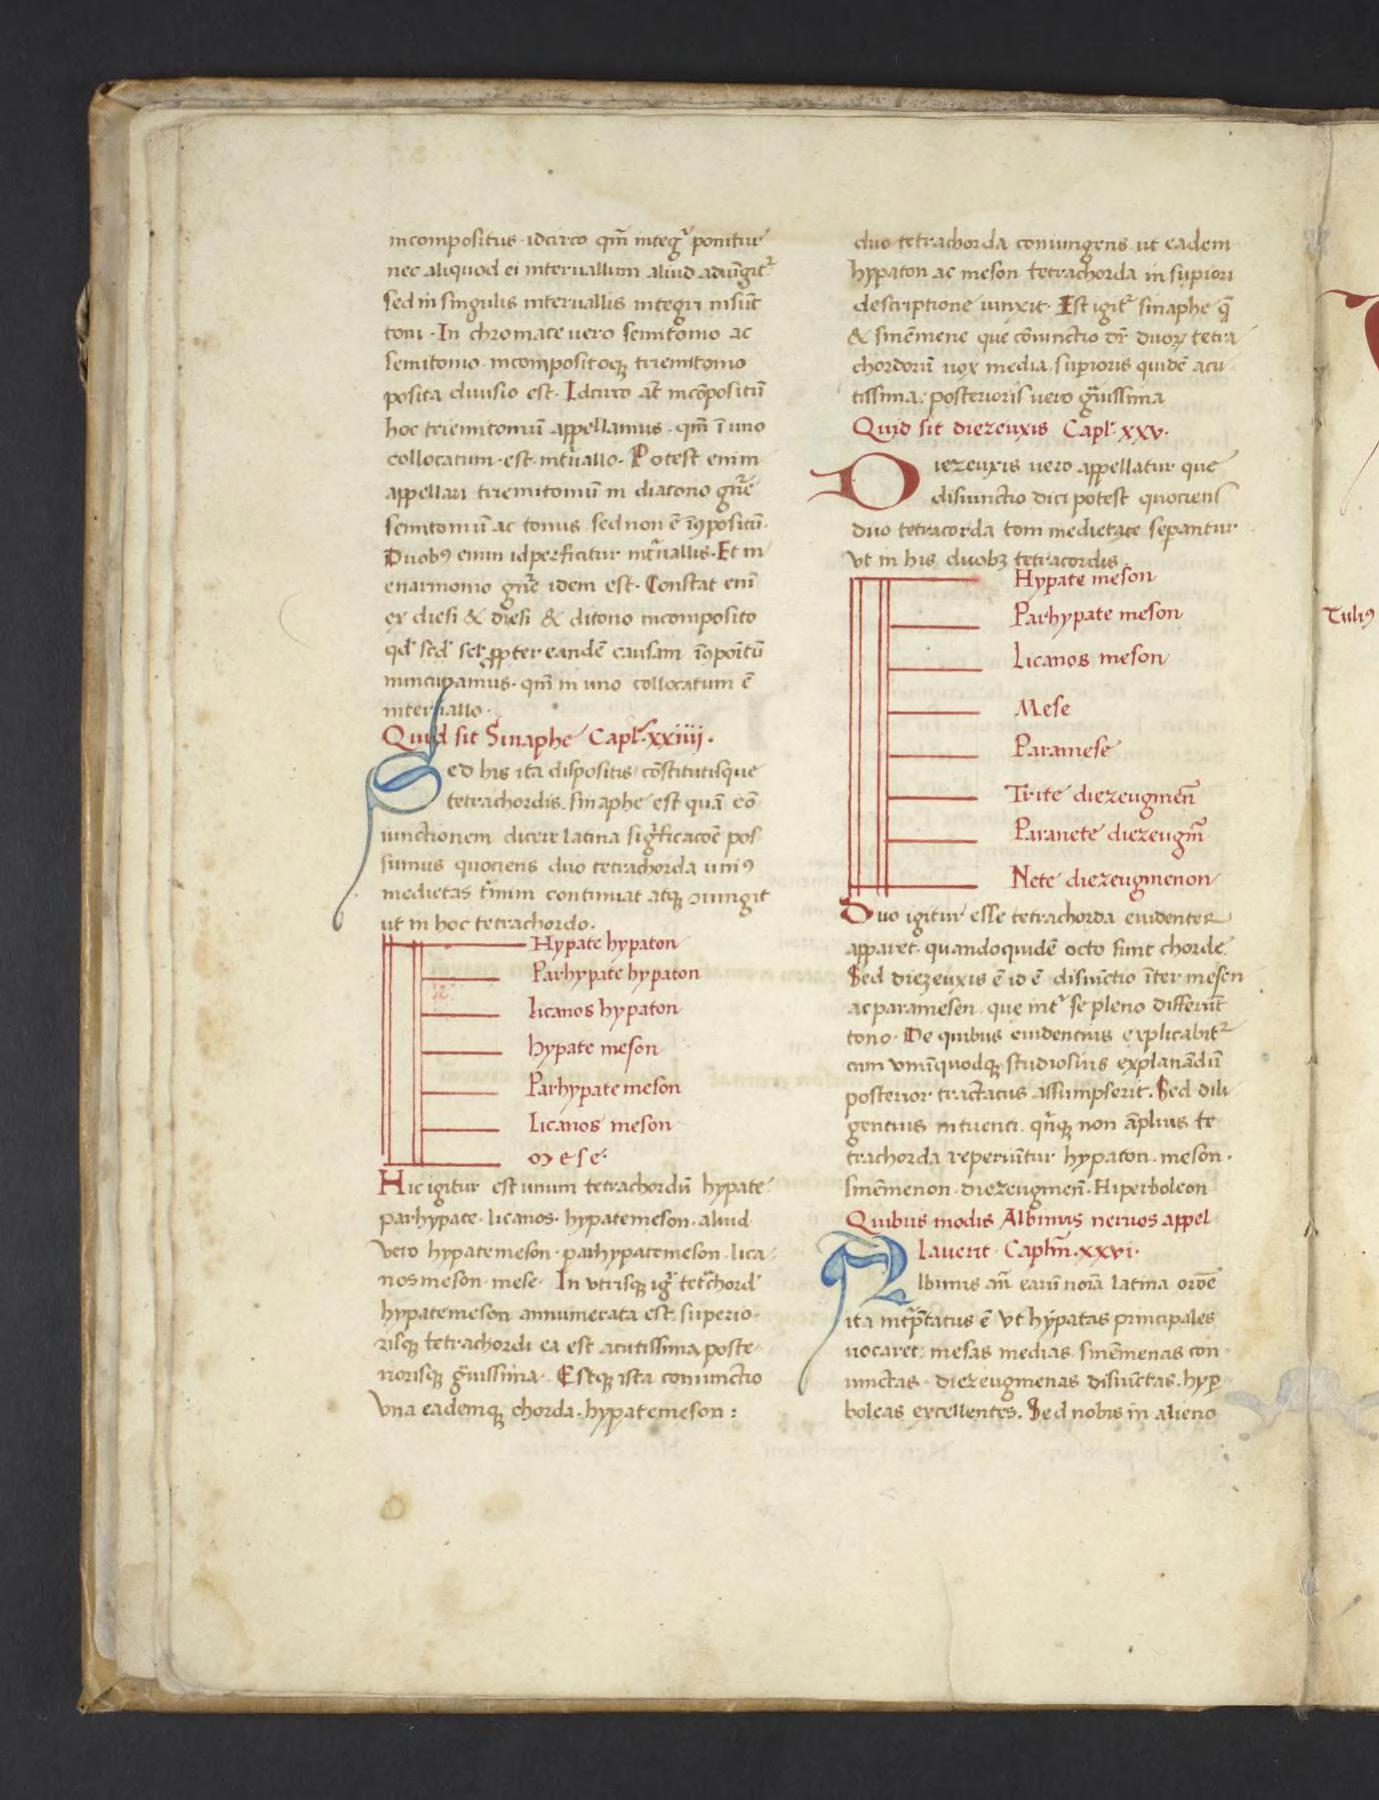 incompositus · idcirco qm̄ integr̄ ponitur
nec aliquod ei interuallum aliud adiūgitᷣ
sed in singulis interuallis integri nsūt
toni · In chromate uero semitonio ac
semitonio incompositoqꝫ triemitonio
posita diuisio est · Idcirco at̄ incōpositū
hoc triemitoniū appellamus · qm̄ ī uno
collocatum · est · int̄uallo · Potest enim
appellari triemitoniū in diatono gn̄e
semitoniū ac tonus sed non ē īꝯpositū ·
Duobꝰ enim id perficitur int̄uallis · Et in
enarmonio gn̄e idem est · Constat enī
ex diesi & diesi & ditono incomposito
qd̄ ꝓpter eandē causam īꝯpoītū
nuncupamus · qm̄ in uno collocatum ē
interuallo ·
Quid sit Sinaphe Capl̄ · xxiiij ·
Sed his ita dispositis cōstitutisque
tetrachordis · sinaphe est quā cō
iunctionem dicere latina sigficacōe pos
sumus quociens duo tetrachorda uniꝰ
medietas t̄minn continuat atqꝫ ꝯiungit
ut in hoc tetrachordo ·
Hypate hypaton
Parhypate hypaton
licanos hypaton
hypate meson
Parhypate meson
Licanos meson
Mese ·
Hic igitur est unum tetrachordū hypate ·
parhypate · licanos · hypatemeson · aliud
vero hypatemeson · parhypatemeson · lica-
nosmeson · mese · In vtrisqꝫ igr̄ tet̄chord̄
hypatemeson annumerata est · superio-
risqꝫ tetrachordi ea est acutissima poste-
riorisqꝫ gūissima · Estqꝫ ista coniunctio
vna eademqꝫ chorda · hypatemeson :
duo tetrachorda coniungens ut eadem
hypaton ac meson tetrachorda in supiori
descriptione iunxit · Est igitᷣ sinaphe q̄
& sinēmene que cōiunctio dr̄ duoꝝ tetra
chordorū uox media · supioris quidē acu
tissima : posterioris uero gūissima
Quid sit diezeuxis Capl̄ · xxv ·
Diezeuxis uero appellatur que
disiunctio dici potest quociens
duo tetracorda toni medietate sepantur
vt in his duobꝫ tetracordis
Hypate meson
Parhypate meson
Licanos meson
Mese
Paramese
Trite diezeugmen̄
Paranete diezeugm̄
Nete diezeugmenon
Duo igitur esse tetrachorda euidenter
apparet · quandoquidē octo sunt chorde
Sed diezeuxis ē id ē disiūctio īter mesen
ac paramesen · que int̄ se pleno differūt
tono · De quibus euidentius explicabitᷣ
cum vnūquodqꝫ studiosius explanādū
posterior tractatus assumpserit · Sed dili
gentius intuenti · qn̄qꝫ non āplius te-
trachorda reperiūtur hypaton · meson ·
sinēmenon · diezeugmen̄ · Hiperboleon
Quibus modis Albinus neruos appel
lauerit · Caplm̄ · xxvi ·
Albinus aūt earū noīa latina orōe
ita int̄p̄tatus ē Vt hypatas principales
uocaret : mesas medias sinēmenas con
iunctas · diezeugmenas disiūctas · hyp
boleas excellentes · Sed nobis in alieno
Tuliꝰ